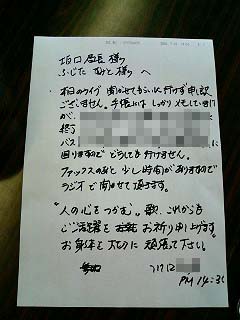 堀口局長様
ふじた あきと様 へ
本日のライブ 聞かせてもらいに行けず申訳
ございません。手帳には しっかりメモしています
が、
終了
バス
回りますので どうしても行けません。
ファックスのあと 少し時間がありますので
ラジオで聞かせて頂きます。
"人の心をつかむ"歌、これからも
ご活躍を お祈り申上げます
お身体を大切に 頑張って下さい。
PM 14:36